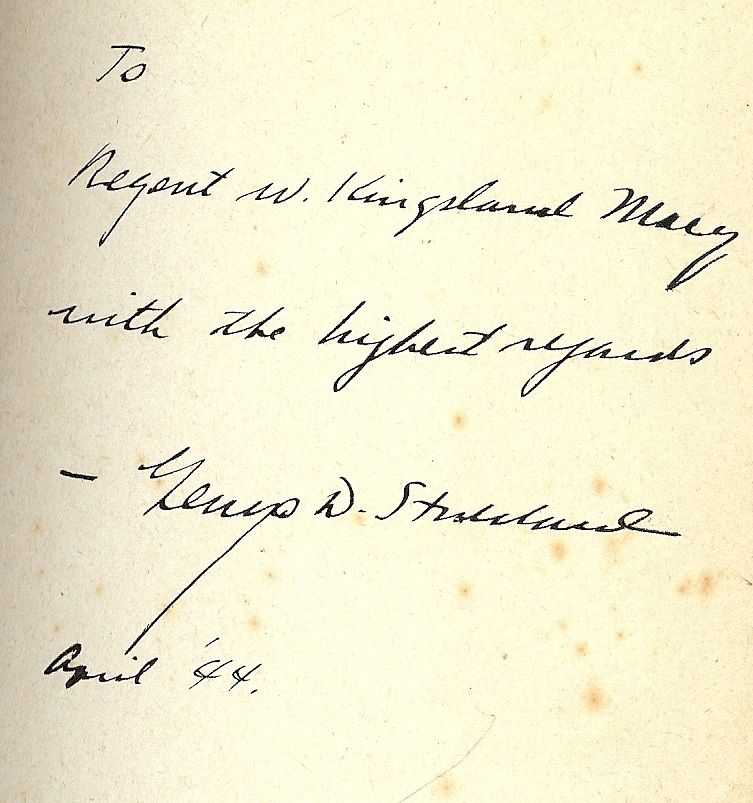 To
Regent W. Kingsland Macy
with the highest regards
— George D. Stoddard
April '44.